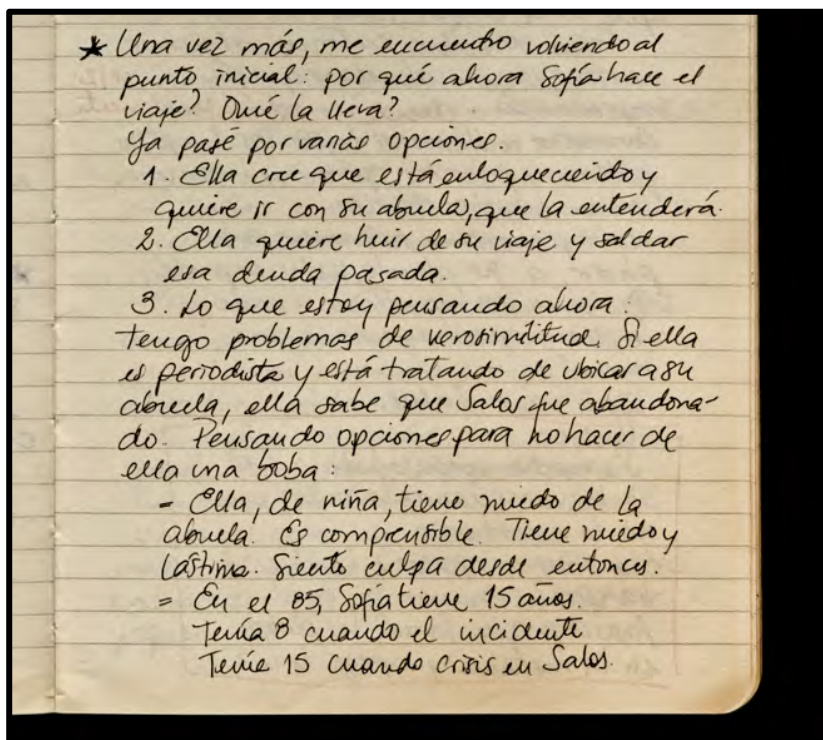 * Una vez más, me encuentro volviendo al
punto inicial: por qué ahora Sofía hace el
viaje? Qué la lleva?
Ya pasé por varias opciones.
1. Ella cree que está enloqueciendo y
quiere ir con su abuela, que la entenderá.
2. Ella quiere huir de su viaje y saldar
esa deuda pasada.
3. Lo que estoy pensando ahora:
tengo problemas de verosimilitud. Si ella
es periodista y está tratando de ubicar a su
abuela, ella sabe que Salos fue abandona-
do. Pensando opciones para no hacer de
ella una boba:
- Ella, de niña, tiene miedo de la
abuela. Es comprensible. Tiene miedo y
lástima. Siente culpa desde entonces.
= En el 85, Sofía tiene 15 años.
Tenía 8 cuando el incidente
Tenía 15 cuando crisis en Salos.